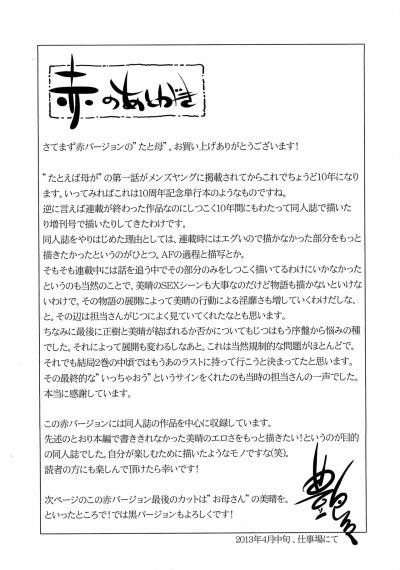 赤のあとがき
さてまず赤バージョンの"たと母"。お買い上げありがとうございます!
"たとえば母が"の第一話がメンズヤングに掲載されてからこれでちょうど10年になり
ます。いってみればこれは10周年記念単行本のようなものですね。
逆に言えば連載が終わった作品なのにしつこく10年間にもわたって同人誌で描いた
り増刊号で描いたりしてきたわけです。
同人誌をやりはじめた理由としては、連載時にはエグいので描かなかった部分をもっと
描きたかったというのがひとつ。AFの過程と描写とか。
そもそも連載中には話を追う中でその部分のみをしつこく描いてるわけにいかなかった
というのも当然のことで、美晴のSEXシーンも大事なのだけど物語も描かないといけな
いわけで。その物語の展開によって美晴の行動による淫靡さも増していくわけだしな、
と。その辺は担当さんがじつによく見ていてくれたなとも思います。
ちなみに最後に正樹と美晴が結ばれるか否かについてもじつはもう序盤から悩みの種
でした。それによって展開も変わるしなあと。これは当然規制的な問題がほとんどで。
それでも結局2巻の中頃ではもうあのラストに持って行こうと決まってたと思います。
その最終的な"いっちゃおう"というサインをくれたのも当時の担当さんの一声でした。
本当に感謝しています。
この赤バージョンには同人誌の作品を中心に収録しています。
先述のとおり本編で書ききれなかった美晴のエロさをもっと描きたい!というのが目的
の同人誌でした。自分が楽しむために描いたようなモノですな(笑)。
読者の方にも楽しんで頂けたら幸いです!
次ページのこの赤バージョン最後のカットは"お母さん"の美晴を。
といったところで!では黒バージョンもよろしくです!
2013年4月中旬、仕事場にて